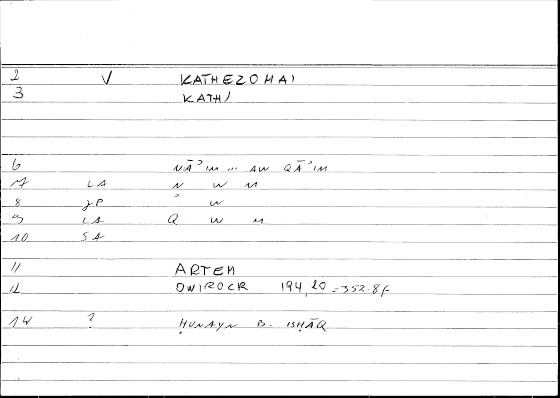 2 V KATHEZOMAI
3 KATHI
6 NĀʾIM ... AW QĀʾIM
7 LA N W M
8 JP ʾ W
9 LA Q W M
10 SA
11 ARTEM
12 ONIROCR 194,20 = 352.8f
14 ? ḤUNAYN B. ISḤĀQ